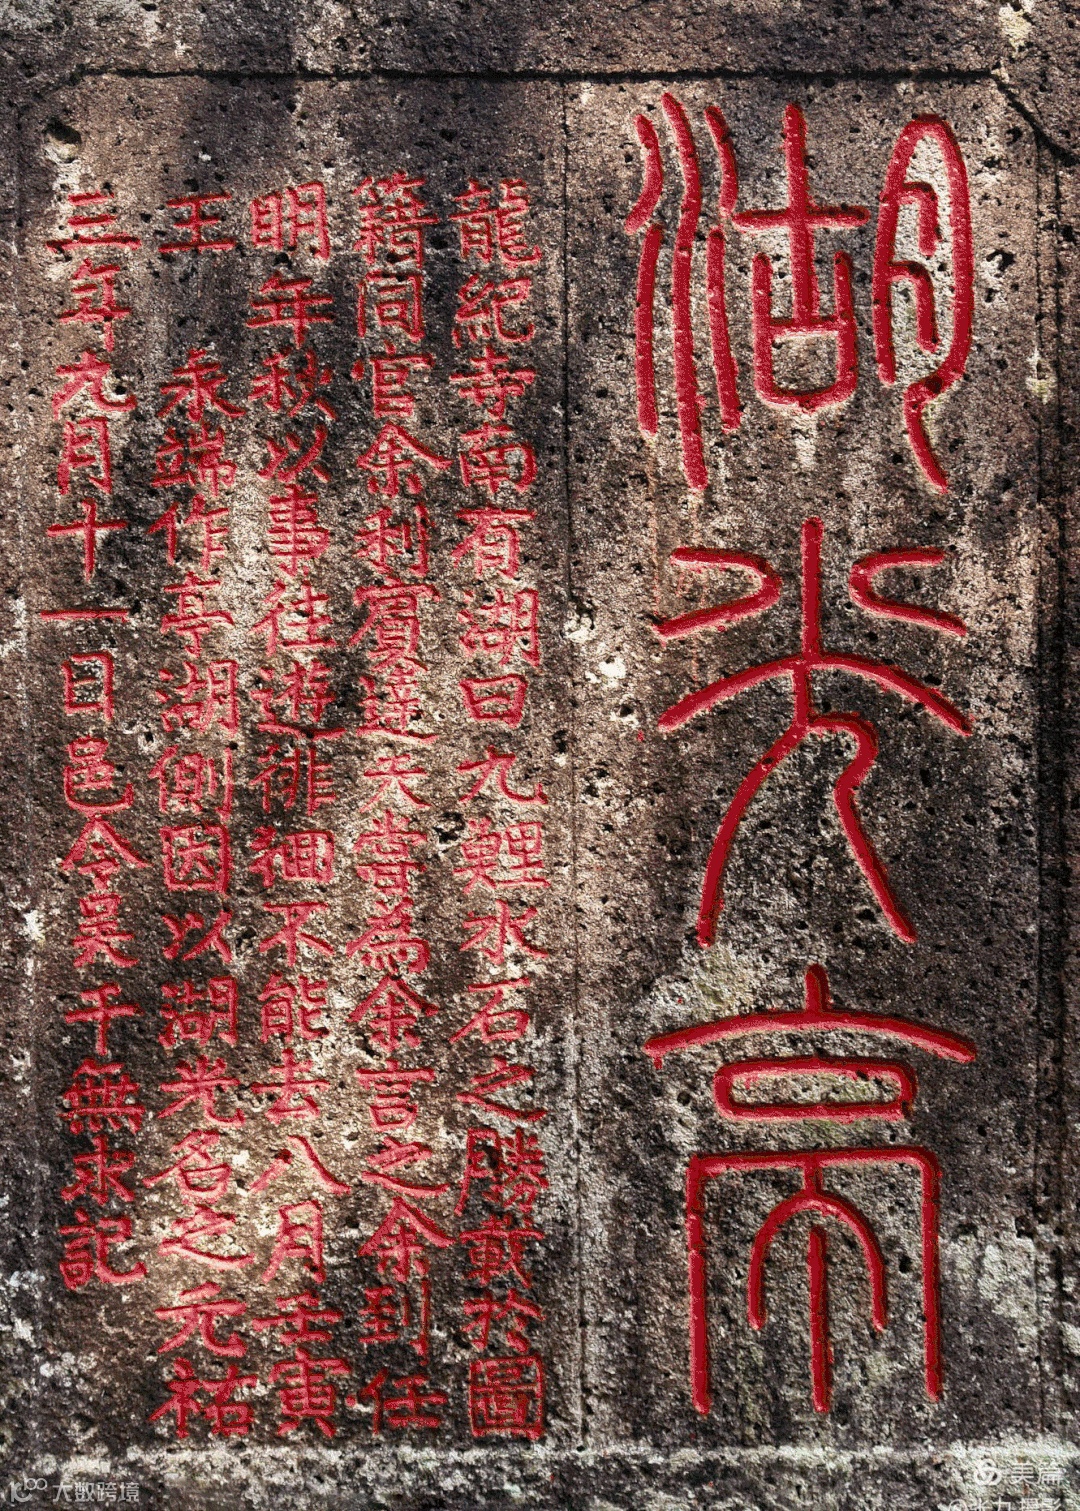 湖光亭
龍紀寺南有湖曰九鯉水石之勝載於圖
籍同官余利賓達夫嘗為余言之余到任
明年秋以事往遊徘徊不能去八月壬寅
王 端作亭湖側因以湖光名之元祐
三年九月十一日邑令吳千無求記
大数跨境
美篇